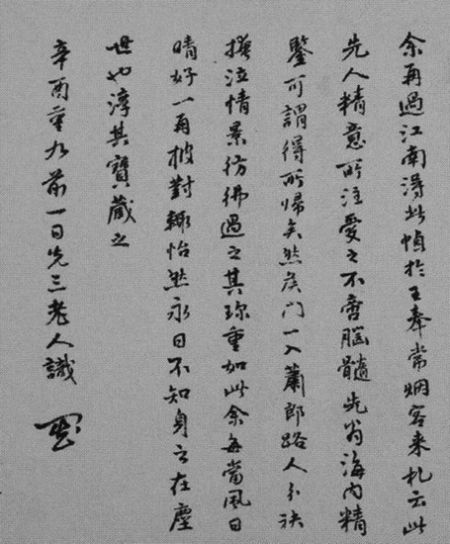 余再過江南得此幀於王奉常烟客来札云此
先人精意所注愛之不啻腦髓先翁海内精
鑒可謂得所歸矣然侯門一入蕭郎路人分袂
揽泣情景彷彿過之其珍重如此余每當風日
晴好一再披對輙怡然永日不知身之在塵
世也淳其寶藏之
辛酉重九前一日先三老人識